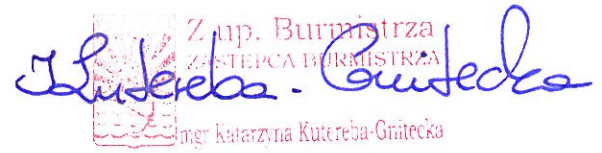 Z up. Burmistrza
ZASTĘPCA BURMISTRZA
KKutereba-Gnitecka
mgr Katarzyna Kutereba-Gnitecka